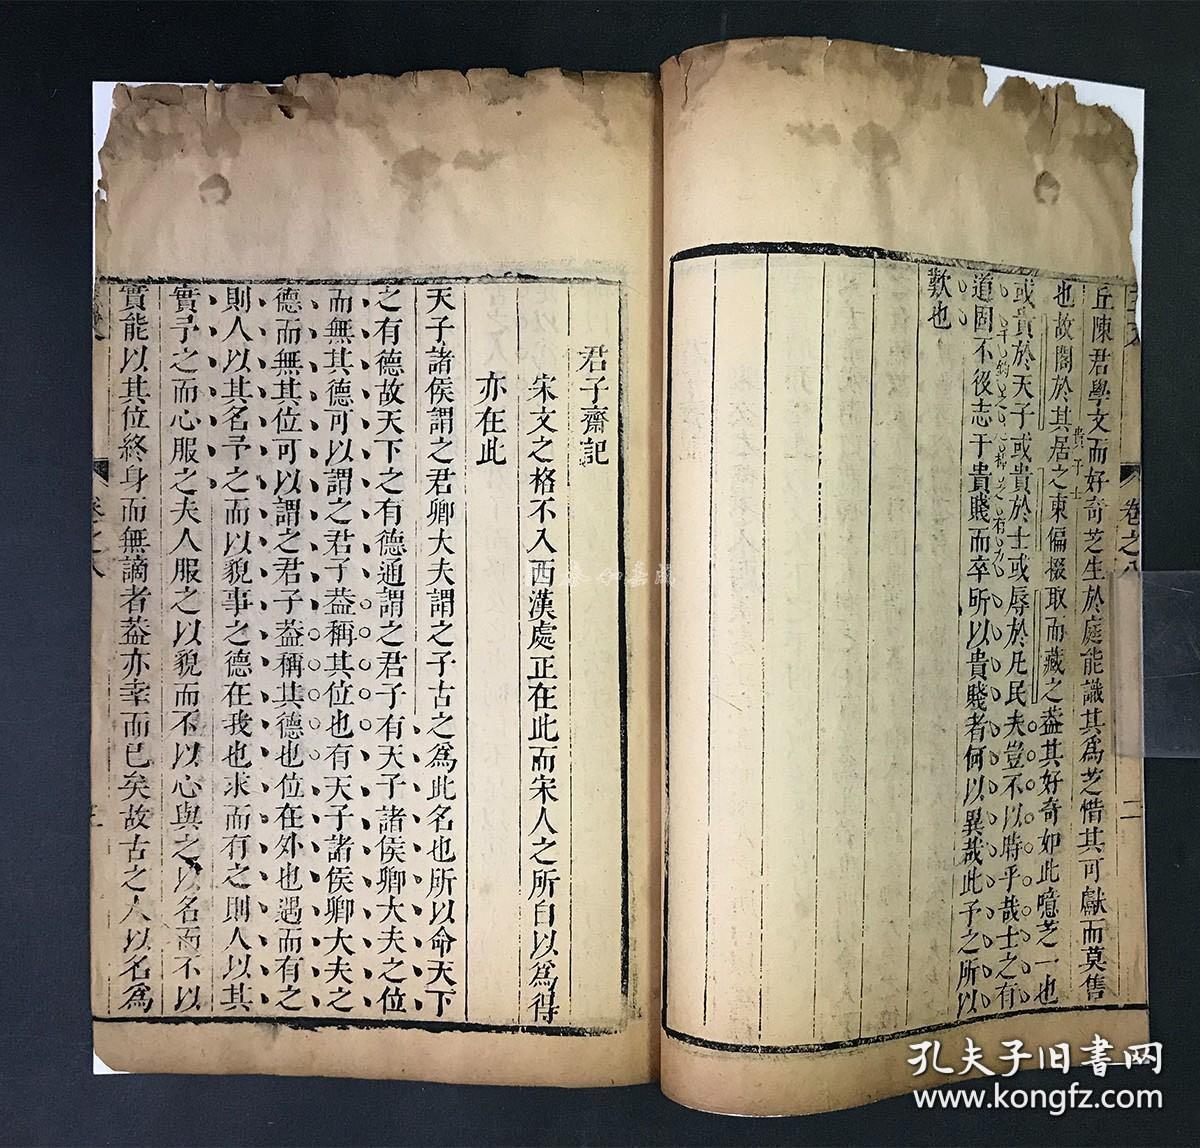 丘陳君學文而好奇芝生於庭能識其爲芝惜其可獻而莫售
也故閣於其居之東偏掇取而藏之葢其好奇如此噫芝一也
或貴於天子或貴於士或辱於凡民夫豈不以時乎哉士之有
道固不役志于貴賤而卒所以貴賤者何以異哉此予之所以
歎也
卷之八
二
君子齋記
宋文之格不入西漢處正在此而宋人之所自以爲得
亦在此
天子諸侯謂之君卿大夫謂之子古之爲此名也所以命天下
之有德故天下之有德通謂之君子有天子諸侯卿大夫之位
而無其德可以謂之君子葢稱其位也有天子諸侯卿大夫之
德而無其位可以謂之君子葢稱其德也位在外也遇而有之
則人以其名予之而以貌事之德在我也求而有之則人以其
實予之而心服之夫人服之以貌而不以心與之以名而不以
實能以其位終身而無謫者葢亦幸而已矣故古之人以名爲
卷之八
孔夫子旧书网
www.kongfz.com